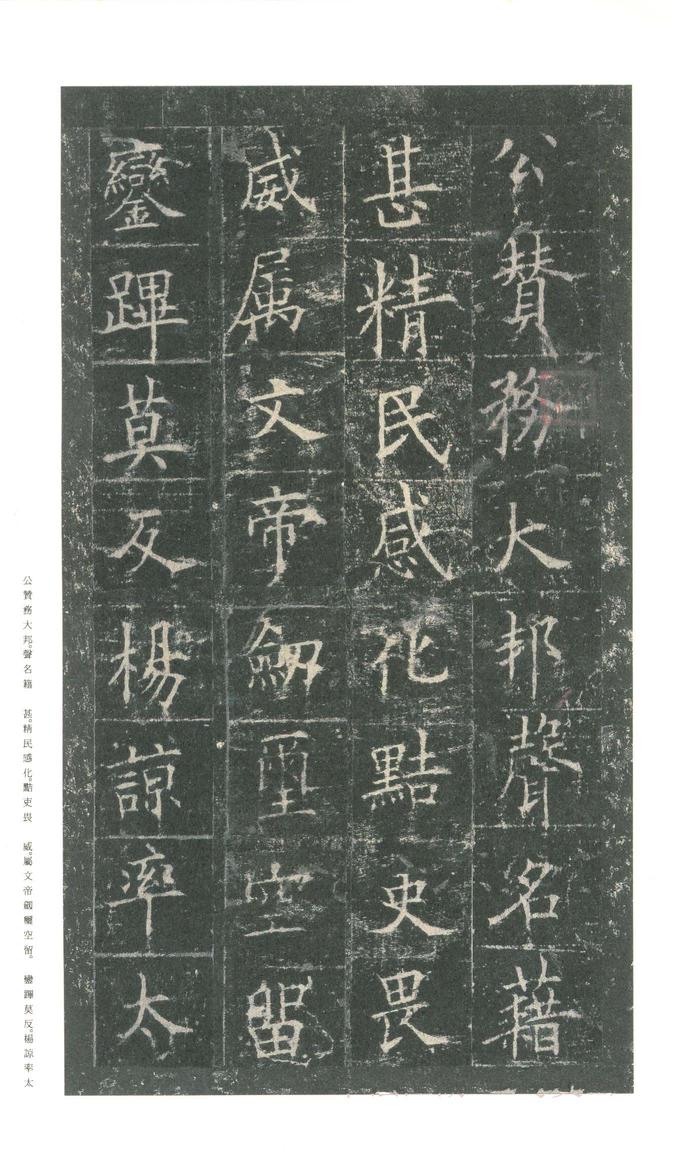 公賛務大邦聲名藉
甚精民感化點吏畏
威属文帝劒壐空留
鑾蹕莫反楊諒率太
公贊務大邦。聲名籍 甚。精民感化。點吏畏 威。屬文帝劒璽空留。 鑾蹕莫反。楊諒率太